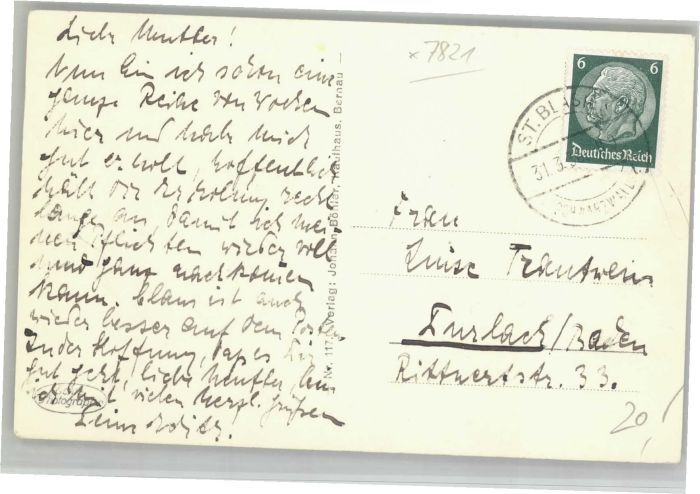 Liebe Mutter!
Nun bin ich schon eine
ganze Reihe von Wochen
hier und habe mich
gut erholt, hoffentlich
hält die Erholung recht
lange an, damit ich mei-
nen Pflichten wieder voll
und ganz nachkommen
kann. Claus ist auch
wieder besser auf dem Posten
In der Hoffnung, dass es Dir
gut geht, liebe Mutter, bin
ich mit vielen herzl. Grüßen
Deine
x 7821
6 6
Deutsches Reich
ST. BLAS
31.3.
(Schwarzw
Nr. 117. Verlag: Johann Böhler, Kaufhaus, Bernau —
Frau
Luise Trautwein
Durlach/Baden
Rittnertstr. 33.
20,